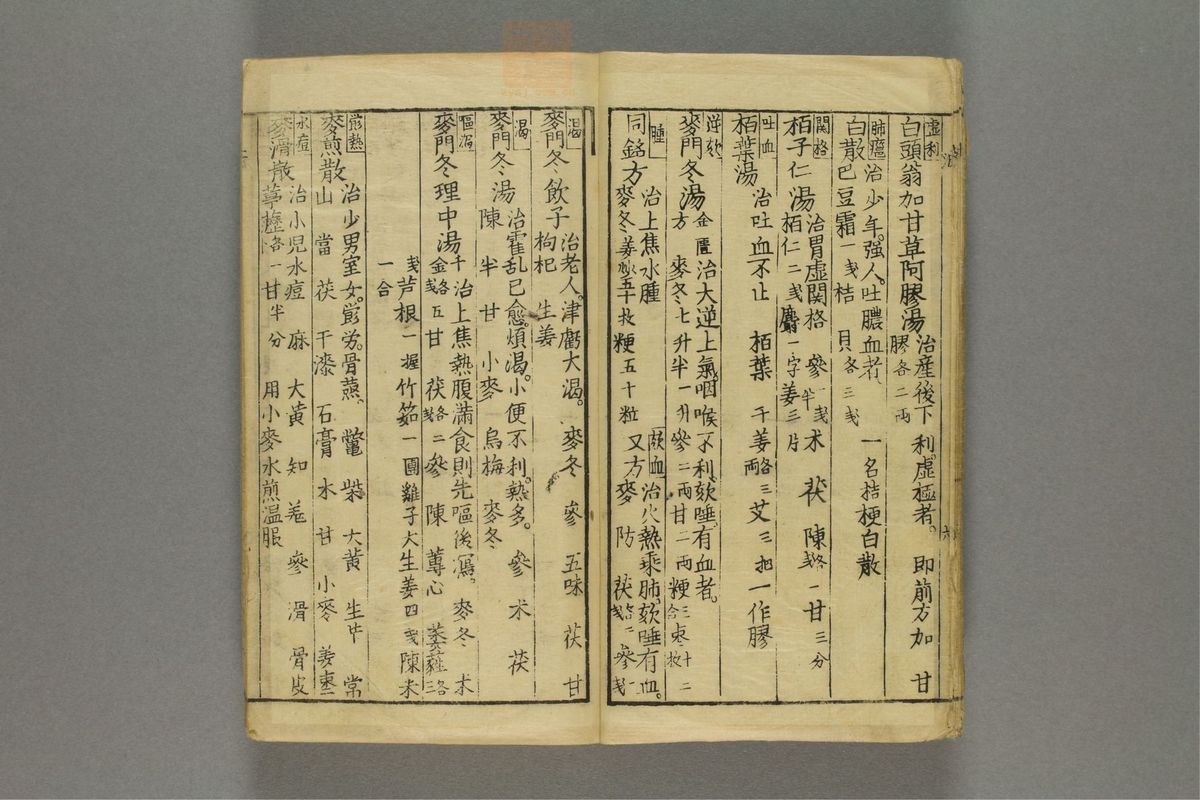 虚利
白頭翁加甘草阿膠湯 治産後下利。虚極者。 即前方加 甘
膠各二両
肺癰 治少年。強人。吐膿血者、
白散 巴豆霜一戔桔 貝各三戔 一名桔梗白散
関格
栢子仁湯 治胃虚関格 參一戔半 术 茯 陳各一戔 甘三分
栢仁二戔麝一字姜三片
吐血
栢葉湯 治吐血不止 栢葉 干姜各三両 艾三把一作膠
逆欬
麥門冬湯 金匱治大逆上氣咽喉不利。欬唾。有血者。
方 麥冬七升半一升參二両甘二両粳三合枣十二枚
腫 治上焦水腫
同銘方 麥冬姜炒五十枚粳五十粒
欬血 治火熱乘肺欬唾有血。
又方 麥 防 茯各二戔 參一戔
渇
麥門冬飲子 治老人。津虧大渇。 麥冬 參 五味 茯 甘
枸杞 生姜
渇 治霍乱已愈。煩渇。小便不利。熱多。 參 术 茯
麥門冬湯 陳 半 甘 小麥 烏梅 麥冬
嘔瀉
麥門冬理中湯 千金 治上焦熱腹滿食則先嘔後瀉。 麥冬 术
各五戔 甘 茯各二戔 參 陳 蓴心 萎蕤各三
戔芦根一握竹筎一團雞子大生姜四戔陳米
一合
治少男室女。骨蒸。 鼈 柴 大黄 生艹 常
麥煎散 山 當 茯 干漆 石膏 木 甘 小麥 姜枣
水痘 治小兒水痘 麻 大黄 知 羗 參 滑 骨皮
麥湯散 葶藶各一 甘半分 用小麥水煎温服